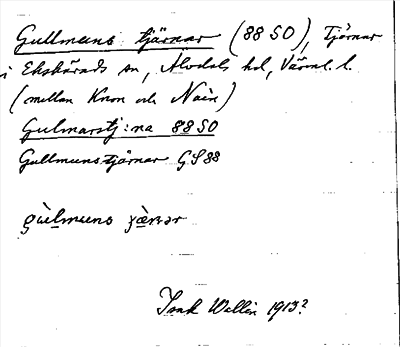 Gullmuns tjärnar (88 SO), Tjärnar
i Ekshärads sn, Älvdals hd, Värml. l.
(mellan Knon och Nain)
Gulmarstj:na 88 SO
Gullmunstjärnar GS 88
gùlmuns
Wallin 1913?